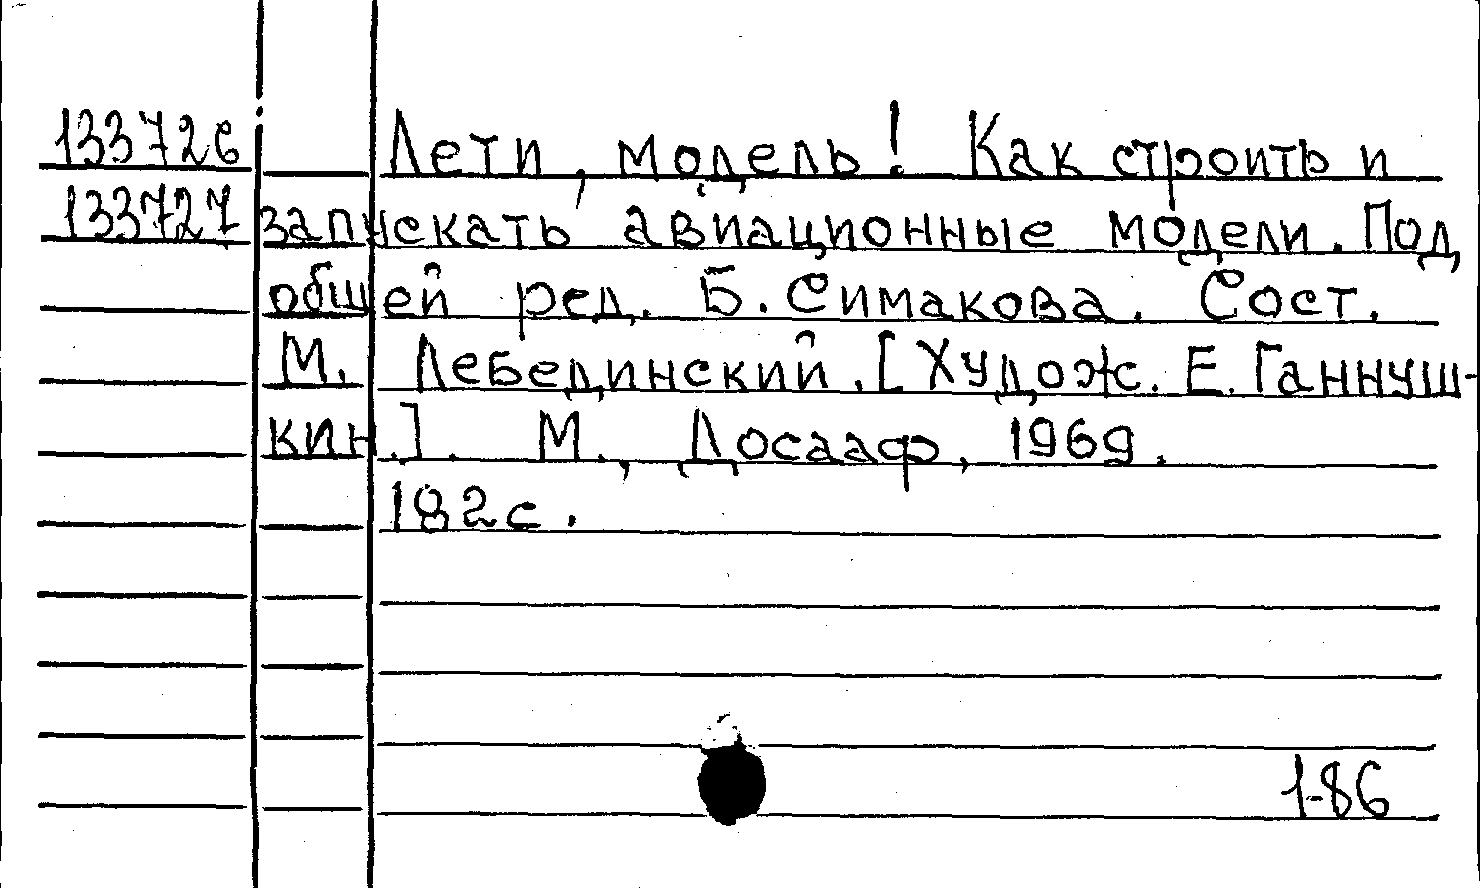 133726 Лети, модель! Как строить и
133727 запускать авиационные модели. Под
общей ред. Б. Симакова. Сост.
М. Лебединский. [Худож. Е. Ганнуш-
кин.]. М., Досааф, 1969.
182с.
1-86